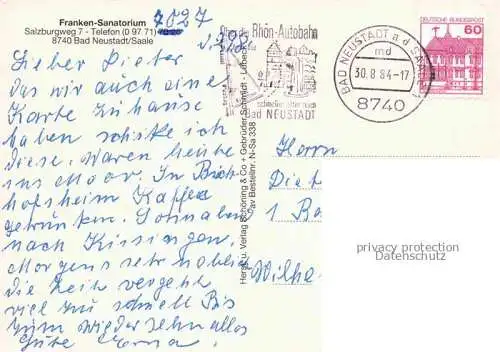 Franken-Sanatorium
Salzburgweg 7 - Telefon (0 97 71)
7027
8740 Bad Neustadt/Saale
Lieber Dieter
Das wir auch eine
Karte zuhause
haben schicke ich
diese. Waren heute
ins Moor. In Bisch
hofsheim Kaffee
getrunken. Sonnabend
nach Kissingen.
Morgens sehr neblig
die Zeit vergeht
viel zu schnell Bis
zum wiedersehn alles
Gute Erna.
Herst. u. Verlag Schöning & Co + Gebrüder Schmidt - Lübeck
Bestellnr. N-Sa 338
Rhön-Autobahn
schneller
Bad NEUSTADT
BAD NEUSTADT a d SAALE
md
30.8.84-17
8740
DEUTSCHE BUNDESPOST
60
Herrn
Diet
1 Be
Wilhe
privacy protection
Datenschutz